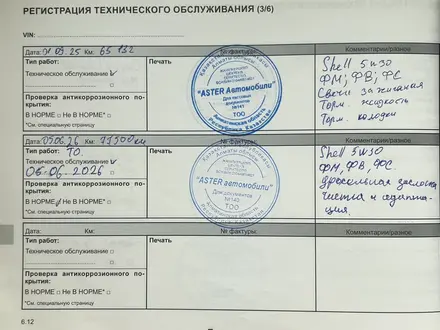 РЕГИСТРАЦИЯ ТЕХНИЧЕСКОГО ОБСЛУЖИВАНИЯ (3/6)
VIN:
Дата: 01.09.25 Км: 65 132 № фактуры: Комментарии/разное
Тип работ: Печать
Техническое обслуживание
Проверка антикоррозионного по-
крытия:
В НОРМЕ □ Не В НОРМЕ* □
*См. специальную страницу
"ASTER Автомобили"
Для счетовых
документов
№141
ТОО
Республика Казахстан
Shell 5w30
ФМ; ФВ; ФС
Свечи зажигания
Торм. жидкость
Торм. колодки
Дата: 05.06.26 Км: 77500 км № фактуры: Комментарии/разное
Тип работ: ТО Печать
Техническое обслуживание □
06-06-2026
Проверка антикоррозионного по-
крытия:
В НОРМЕ Не В НОРМЕ* □
*См. специальную страницу
"ASTER автомобили"
Для документов
№143
ТОО
Shell 5W30
ФМ, ФВ, ФС
дроссельная заслонка
чистка и адапта-
ция.
Дата: Км: № фактуры: Комментарии/разное
Тип работ: Печать
Техническое обслуживание □
Проверка антикоррозионного по-
крытия:
В НОРМЕ □ Не В НОРМЕ* □
*См. специальную страницу
6.12